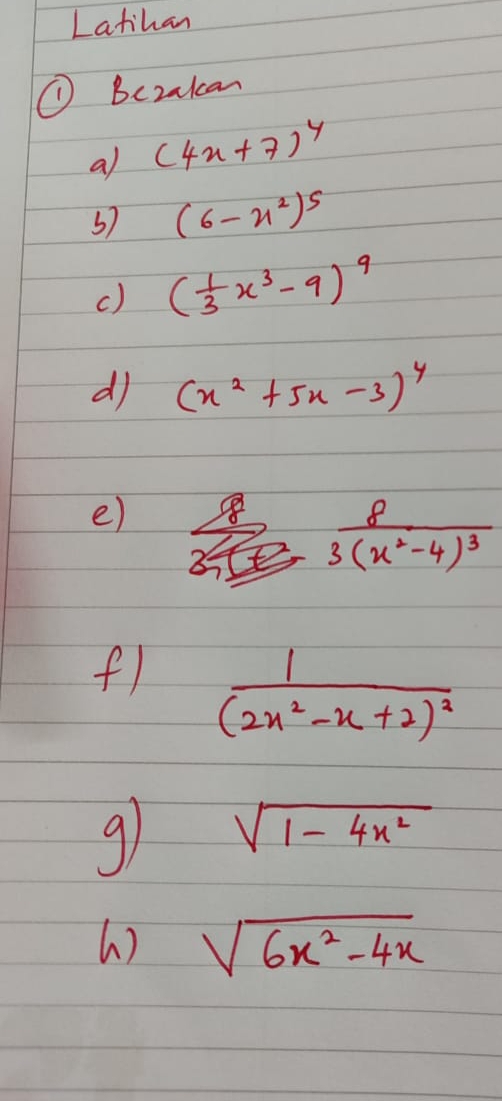 Latihan
① Bezakan
a) (4x+7)⁴
b) (6-x²)⁵
c) (1/3 x³-9)⁹
d) (x²+5x-3)⁴
e) 8/3(x²-4)³
f) 1/(2x²-x+2)²
g) √1-4x²
h) √6x²-4x